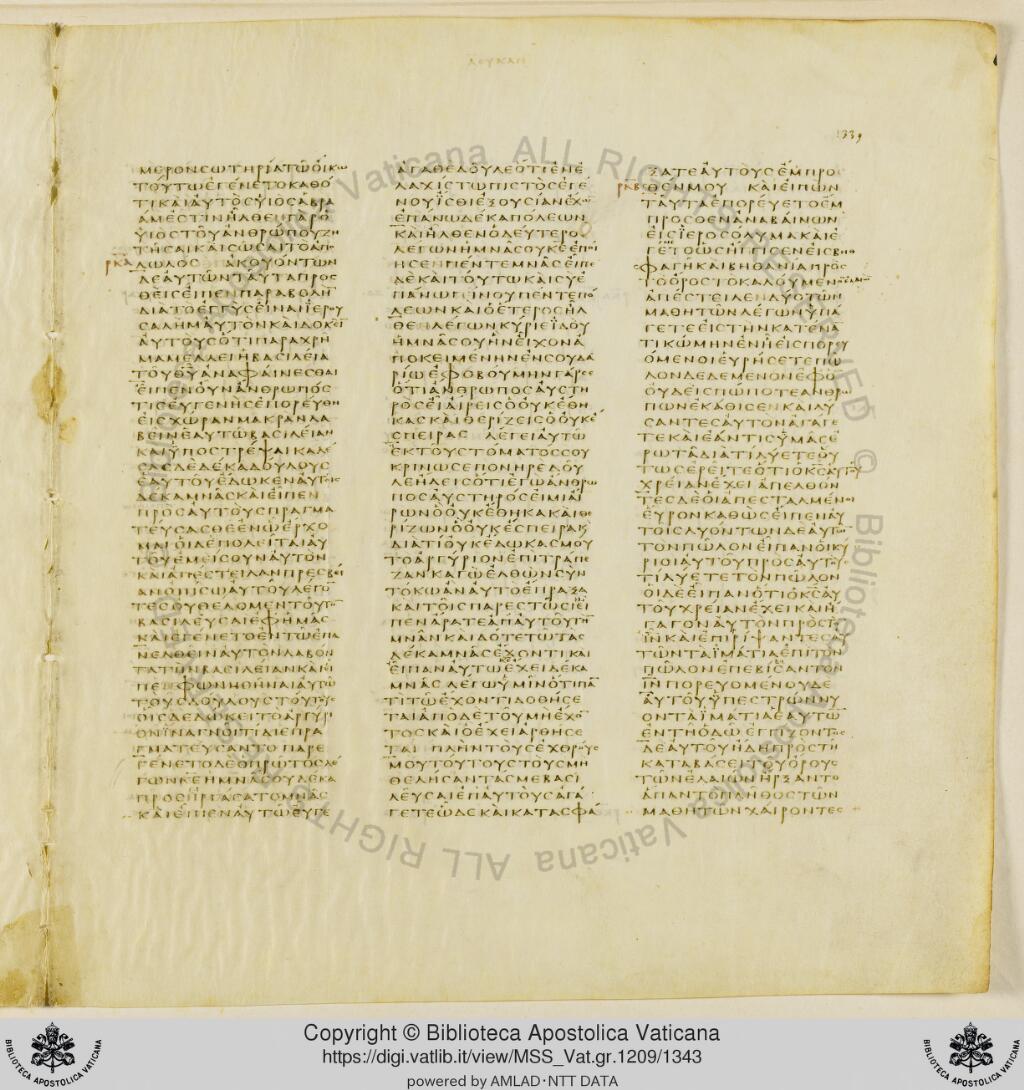 ΛΟΥΚΑΝ
1339
ΜΕΡΟΝϹΩΤΗΡΙΑΤΩΟΙΚΩ
ΤΟΥΤΩΕΓΕΝΕΤΟΚΑΘΟ
ΤΙΚΑΙΑΥΤΟϹΥΙΟϹΑΒΡΑ
ΑΜΕϹΤΙΝΗΛΘΕΝΓΑΡΟ
ΥΙΟϹΤΟΥΑΝΘΡΩΠΟΥΖΗ
ΤΗϹΑΙΚΑΙϹΩϹΑΙΤΟΑΠΟ
ΡΚΑ ΛΩΛΟϹ ΑΚΟΥΟΝΤΩΝ
ΔΕΑΥΤΩΝΤΑΥΤΑΠΡΟϹ
ΘΕΙϹΕΙΠΕΝΠΑΡΑΒΟΛΗ
ΔΙΑΤΟΕΓΓΥϹΕΙΝΑΙΙΕΡΟΥ
ϹΑΛΗΜΑΥΤΟΝΚΑΙΔΟΚΕΙ
ΑΥΤΟΥϹΟΤΙΠΑΡΑΧΡΗ
ΜΑΜΕΛΛΕΙΗΒΑϹΙΛΕΙΑ
ΤΟΥΘΥΑΝΑΦΑΙΝΕϹΘΑΙ
ΕΙΠΕΝΟΥΝΑΝΘΡΩΠΟϹ
ΤΙϹΕΥΓΕΝΗϹΕΠΟΡΕΥΘΗ
ΕΙϹΧΩΡΑΝΜΑΚΡΑΝΛΑ
ΒΕΙΝΕΑΥΤΩΒΑϹΙΛΕΙΑΝ
ΚΑΙΥΠΟϹΤΡΕΨΑΙΚΑΛΕ
ϹΑϹΔΕΔΕΚΑΔΟΥΛΟΥϹ
ΕΑΥΤΟΥΕΔΩΚΕΝΑΥΤΟΙϹ
ΔΕΚΑΜΝΑϹΚΑΙΕΙΠΕΝ
ΠΡΟϹΑΥΤΟΥϹΠΡΑΓΜΑ
ΤΕΥϹΑϹΘΕΕΝΩΕΡΧΟ
ΜΑΙΟΙΔΕΠΟΛΕΙΤΑΙΑΥ
ΤΟΥΕΜΕΙϹΟΥΝΑΥΤΟΝ
ΚΑΙΑΠΕϹΤΕΙΛΑΝΠΡΕϹΒΕΙ
ΑΝΟΠΙϹΩΑΥΤΟΥΛΕΓΟ
ΤΕϹΟΥΘΕΛΟΜΕΝΤΟΥΤΟ
ΒΑϹΙΛΕΥϹΑΙΕΦΗΜΑϹ
ΚΑΙΕΓΕΝΕΤΟΕΝΤΩΕΠΑ
ΝΕΛΘΕΙΝΑΥΤΟΝΛΑΒΟΝ
ΤΑΤΗΝΒΑϹΙΛΕΙΑΝΚΑΙΕΙ
ΠΕΝΦΩΝΗΘΗΝΑΙΑΥΤΩ
ΤΟΥϹΔΟΥΛΟΥϹΤΟΥΤΟΥϹ
ΟΙϹΔΕΔΩΚΕΙΤΟΑΡΓΥΡΙ
ΟΝΙΝΑΓΝΟΙΤΙΔΙΕΠΡΑ
ΓΜΑΤΕΥϹΑΝΤΟΠΑΡΕ
ΓΕΝΕΤΟΔΕΟΠΡΩΤΟϹΛΕ
ΓΩΝΚΕΗΜΝΑϹΟΥΔΕΚΑ
ΠΡΟϹΗΡΓΑϹΑΤΟΜΝΑϹ
ΚΑΙΕΙΠΕΝΑΥΤΩΕΥΓΕ
ΑΓΑΘΕΔΟΥΛΕΟΤΙΕΝΕ
ΛΑΧΙϹΤΩΠΙϹΤΟϹΕΓΕ
ΝΟΥΙϹΘΙΕΞΟΥϹΙΑΝΕΧΩ
ΕΠΑΝΩΔΕΚΑΠΟΛΕΩΝ
ΚΑΙΗΛΘΕΝΟΔΕΥΤΕΡΟ
ΛΕΓΩΝΗΜΝΑϹΟΥΚΕΕΠΟΙ
ΗϹΕΝΠΕΝΤΕΜΝΑϹΕΙΠΕ
ΔΕΚΑΙΤΟΥΤΩΚΑΙϹΥΕ
ΠΑΝΩΓΙΝΟΥΠΕΝΤΕΠΟ
ΛΕΩΝΚΑΙΟΕΤΕΡΟϹΗΛ
ΘΕΝΛΕΓΩΝΚΥΡΙΕΙΔΟΥ
ΗΜΝΑϹΟΥΗΝΕΙΧΟΝΑ
ΠΟΚΕΙΜΕΝΗΝΕΝϹΟΥΔΑ
ΡΙΩΕΦΟΒΟΥΜΗΝΓΑΡϹΕ
ΟΤΙΑΝΘΡΩΠΟϹΑΥϹΤΗ
ΡΟϹΕΙΑΙΡΕΙϹΟΟΥΚΕΘΗ
ΚΑϹΚΑΙΘΕΡΙΖΕΙϹΟΟΥΚΕ
ϹΠΕΙΡΑϹ ΛΕΓΕΙΑΥΤΩ
ΕΚΤΟΥϹΤΟΜΑΤΟϹϹΟΥ
ΚΡΙΝΩϹΕΠΟΝΗΡΕΔΟΥ
ΛΕΗΔΕΙϹΟΤΙΕΓΩΑΝΘΡΩ
ΠΟϹΑΥϹΤΗΡΟϹΕΙΜΙΑΙ
ΡΩΝΟΟΥΚΕΘΗΚΑΚΑΙΘΕ
ΡΙΖΩΝΟΟΥΚΕϹΠΕΙΡΑΚΑΙ
ΔΙΑΤΙΟΥΚΕΔΩΚΑϹΜΟΥ
ΤΟΑΡΓΥΡΙΟΝΕΠΙΤΡΑΠΕ
ΖΑΝΚΑΓΩΕΛΘΩΝϹΥΝ
ΤΟΚΩΑΝΑΥΤΟΕΠΡΑΞΑ
ΚΑΙΤΟΙϹΠΑΡΕϹΤΩϹΙΕΙ
ΠΕΝΑΡΑΤΕΑΠΑΥΤΟΥΤΗ
ΜΝΑΝΚΑΙΔΟΤΕΤΩΤΑϹ
ΔΕΚΑΜΝΑϹΕΧΟΝΤΙΚΑΙ
ΕΙΠΑΝΑΥΤΩΚΕΕΧΕΙΔΕΚΑ
ΜΝΑϹΛΕΓΩΥΜΙΝΟΤΙΠΑ
ΤΙΤΩΕΧΟΝΤΙΔΟΘΗϹΕ
ΤΑΙΑΠΟΔΕΤΟΥΜΗΕΧΟ
ΤΟϹΚΑΙΟΕΧΕΙΑΡΘΗϹΕ
ΤΑΙ ΠΛΗΝΤΟΥϹΕΧΘΡΟΥϹ
ΜΟΥΤΟΥΤΟΥϹΤΟΥϹΜΗ
ΘΕΛΗϹΑΝΤΑϹΜΕΒΑϹΙ
ΛΕΥϹΑΙΕΠΑΥΤΟΥϹΑΓΑ
ΓΕΤΕΩΔΕΚΑΙΚΑΤΑϹΦΑ
ΞΑΤΕΑΥΤΟΥϹΕΜΠΡΟ
ΡΚΒ ϹΘΕΝΜΟΥ ΚΑΙΕΙΠΩΝ
ΤΑΥΤΑΕΠΟΡΕΥΕΤΟΕΜ
ΠΡΟϹΘΕΝΑΝΑΒΑΙΝΩΝ
ΕΙϹΙΕΡΟϹΟΛΥΜΑΚΑΙΕ
ΓΕΤΟΩϹΗΓΓΙϹΕΝΕΙϹΒΗΘ
ϹΦΑΓΗΚΑΙΒΗΘΑΝΙΑΠΡΟϹ
ΤΟΟΡΟϹΤΟΚΑΛΟΥΜΕΝΟΝΕΛΑΙΩΝ
ΑΠΕϹΤΕΙΛΕΝΔΥΟΤΩΝ
ΜΑΘΗΤΩΝΛΕΓΩΝΥΠΑ
ΓΕΤΕΕΙϹΤΗΝΚΑΤΕΝΑ
ΤΙΚΩΜΗΝΕΝΗΕΙϹΠΟΡΕΥ
ΟΜΕΝΟΙΕΥΡΗϹΕΤΕΠΩ
ΛΟΝΔΕΔΕΜΕΝΟΝΕΦΟ
ΟΥΔΕΙϹΠΩΠΟΤΕΑΝΘΡΩ
ΠΩΝΕΚΑΘΙϹΕΝΚΑΙΛΥ
ϹΑΝΤΕϹΑΥΤΟΝΑΓΑΓΕ
ΤΕΚΑΙΕΑΝΤΙϹΥΜΑϹΕ
ΡΩΤΑΔΙΑΤΙΛΥΕΤΕΟΥ
ΤΩϹΕΡΕΙΤΕΟΤΙΟΚϹΑΥΤΟΥ
ΧΡΕΙΑΝΕΧΕΙΑΠΕΛΘΟΝ
ΤΕϹΔΕΟΙΑΠΕϹΤΑΛΜΕΝΟΙ
ΕΥΡΟΝΚΑΘΩϹΕΙΠΕΝΑΥ
ΤΟΙϹΛΥΟΝΤΩΝΔΕΑΥΤΩ
ΤΟΝΠΩΛΟΝΕΙΠΑΝΟΙΚΥ
ΡΙΟΙΑΥΤΟΥΠΡΟϹΑΥΤΟΥϹ
ΤΙΛΥΕΤΕΤΟΝΠΩΛΟΝ
ΟΙΔΕΕΙΠΑΝΟΤΙΟΚϹΑΥ
ΤΟΥΧΡΕΙΑΝΕΧΕΙΚΑΙΗ
ΓΑΓΟΝΑΥΤΟΝΠΡΟϹΤΟ
ΙΝΚΑΙΕΠΙΡΙΨΑΝΤΕϹΑΥ
ΤΩΝΤΑΙΜΑΤΙΑΕΠΙΤΟΝ
ΠΩΛΟΝΕΠΕΒΙΒΑϹΑΝΤΟΝ
ΙΝΠΟΡΕΥΟΜΕΝΟΥΔΕ
ΑΥΤΟΥΥΠΕϹΤΡΩΝΝΥ
ΟΝΤΑΙΜΑΤΙΑΕΑΥΤΩ
ΕΝΤΗΟΔΩΕΓΓΙΖΟΝΤΟϹ
ΔΕΑΥΤΟΥΗΔΗΠΡΟϹΤΗ
ΚΑΤΑΒΑϹΕΙΤΟΥΟΡΟΥϹ
ΤΩΝΕΛΑΙΩΝΗΡΞΑΝΤΟ
ΑΠΑΝΤΟΠΛΗΘΟϹΤΩΝ
ΜΑΘΗΤΩΝΧΑΙΡΟΝΤΕϹ
Copyright © Biblioteca Apostolica Vaticana
https://digi.vatlib.it/view/MSS_Vat.gr.1209/1343
powered by AMLAD·NTT DATA